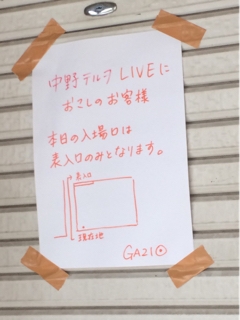 中野テルヲ LIVEに
おこしのお客様
本日の入場口は
表入口のみとなります。
表入口
現在地
GA21⦿